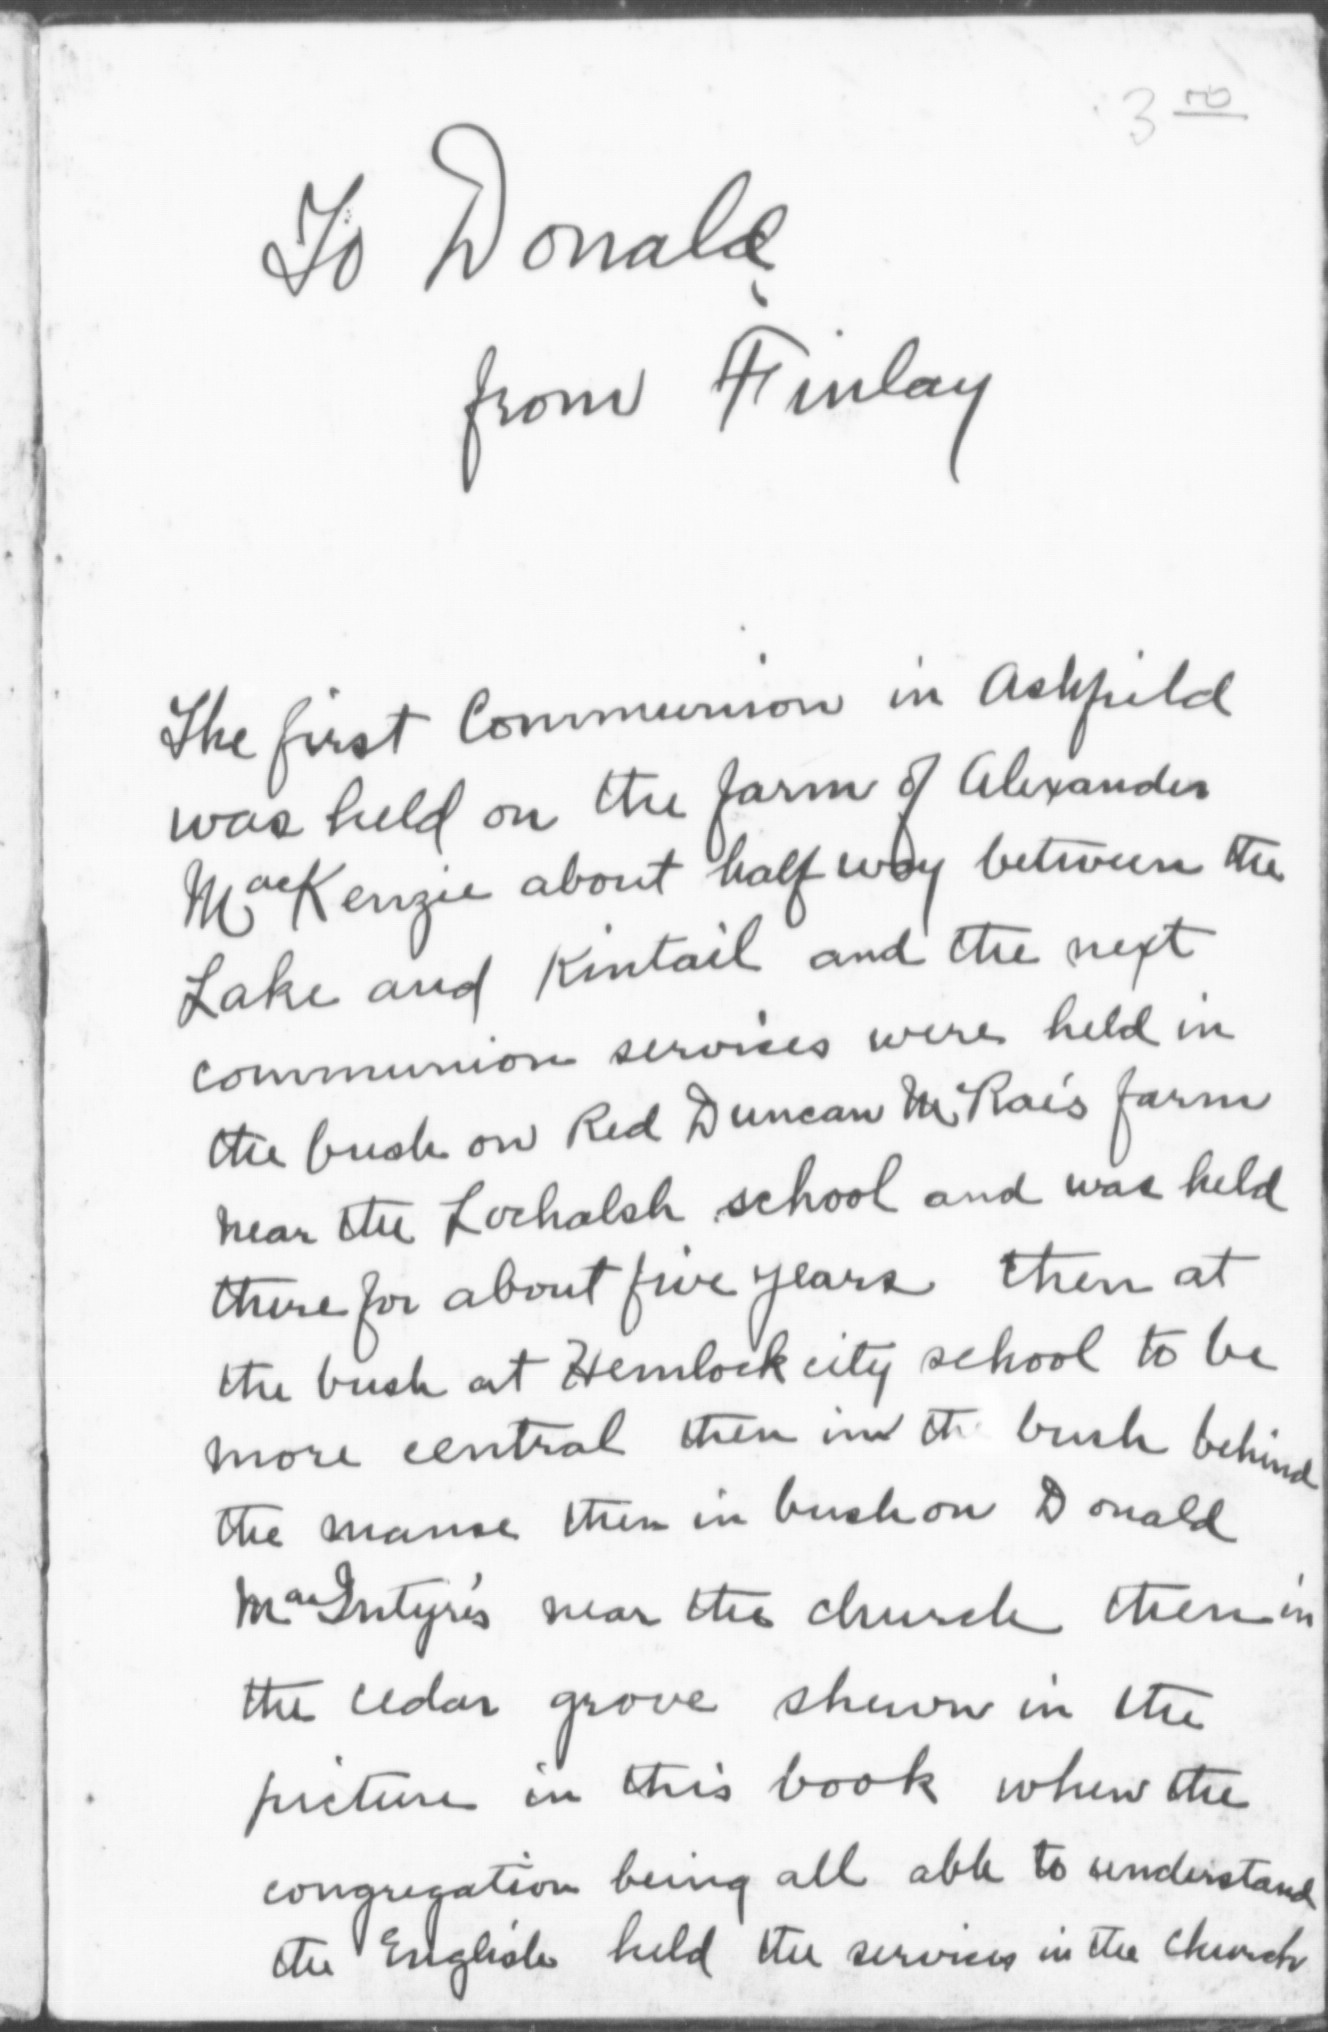 3 00
To Donald
from Finlay
The first Communion in Ashfield
was held on the farm of Alexander
MacKenzie about half way between the
Lake and Kintail and the next
communion services were held in
the bush on Red Duncan McRae's farm
near the Lochalsh school and was held
there for about five years then at
the bush at Hemlock city school to be
more central then in the bush behind
the manse then in bush on Donald
MacIntyre's near the church then in
the cedar grove shewn in the
picture in this book when the
congregation being all able to understand
the English held the services in the church